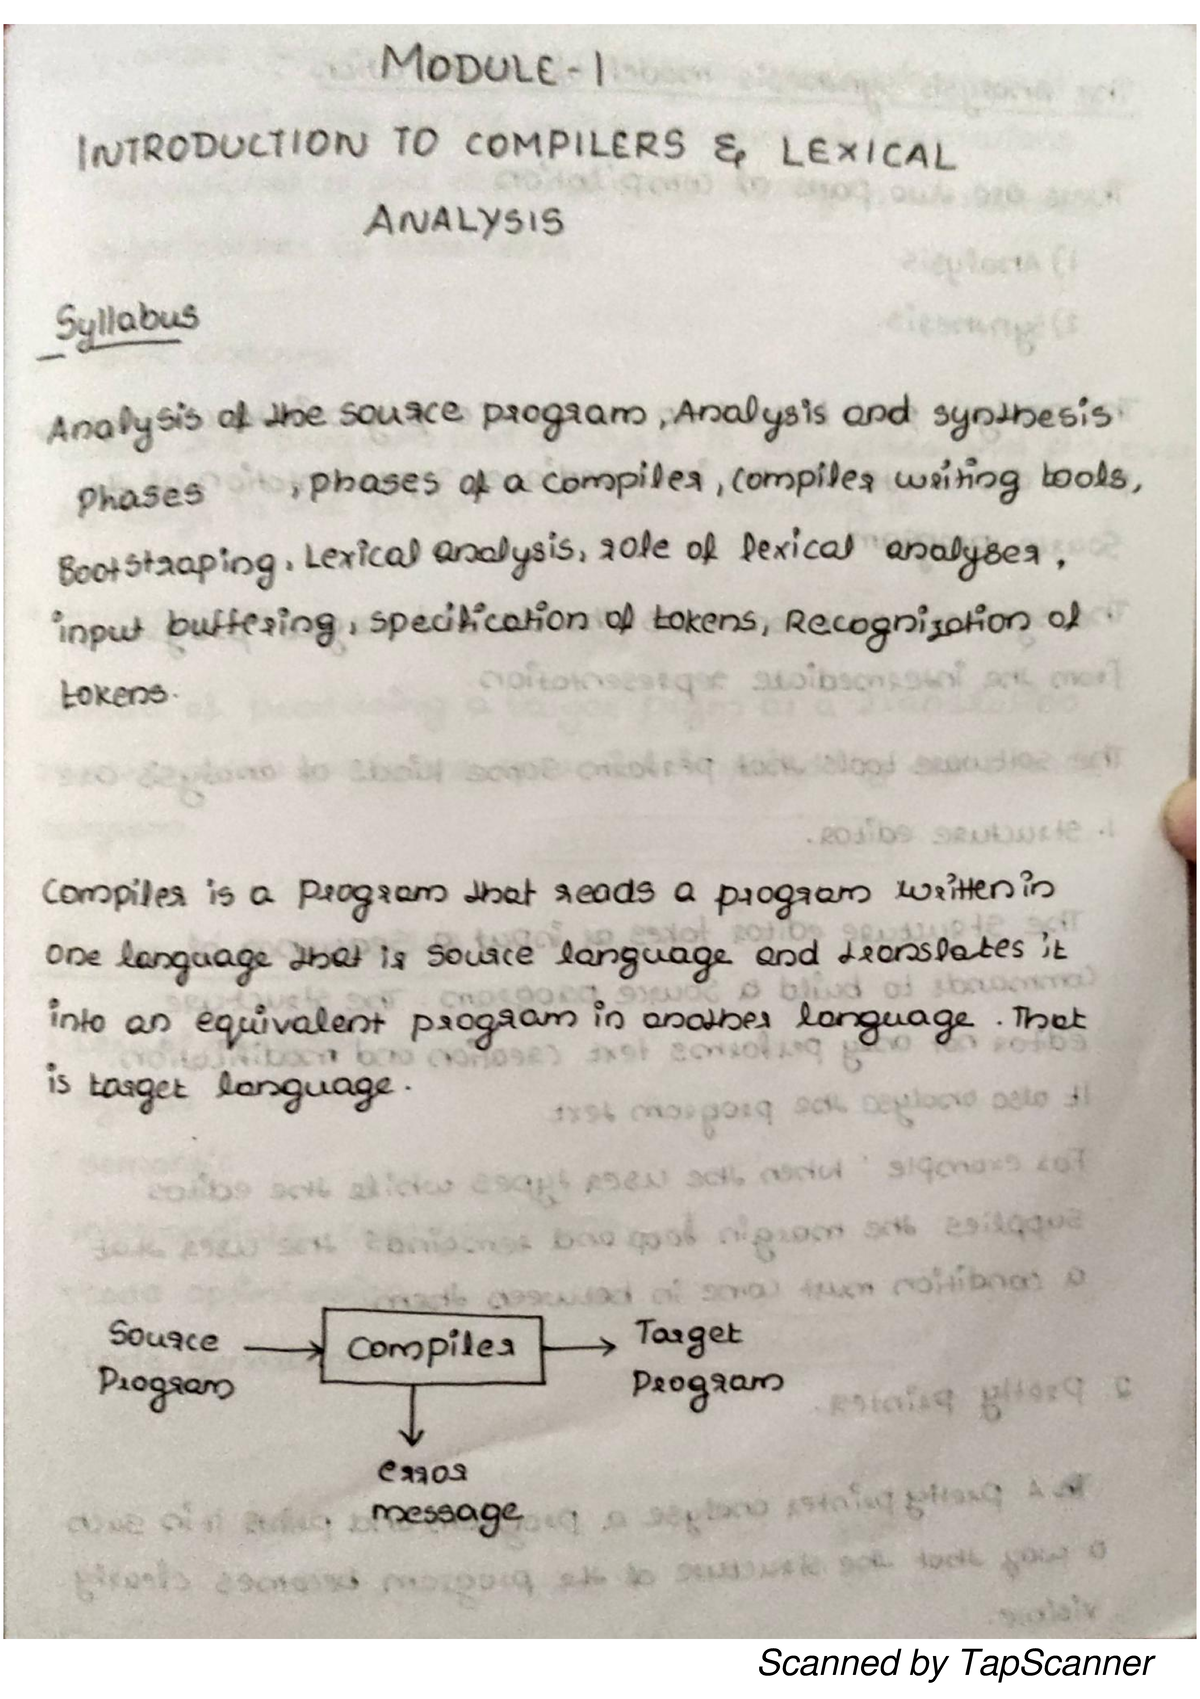 MODULE-1
INTRODUCTION TO COMPILERS & LEXICAL
ANALYSIS
Syllabus
Analysis of the source program, Analysis and synthesis
Phases , phases of a compiler, compiler writing tools,
Bootstraping, Lexical analysis, role of lexical analyser,
input buffering, specification of tokens, Recognization of
tokens.
Compiler is a Program that reads a program written in
one language that is source language and translates it
into an equivalent program in another language. That
is target language.
Source
Program
Compiler
Target
Program
error
message
Scanned by TapScanner